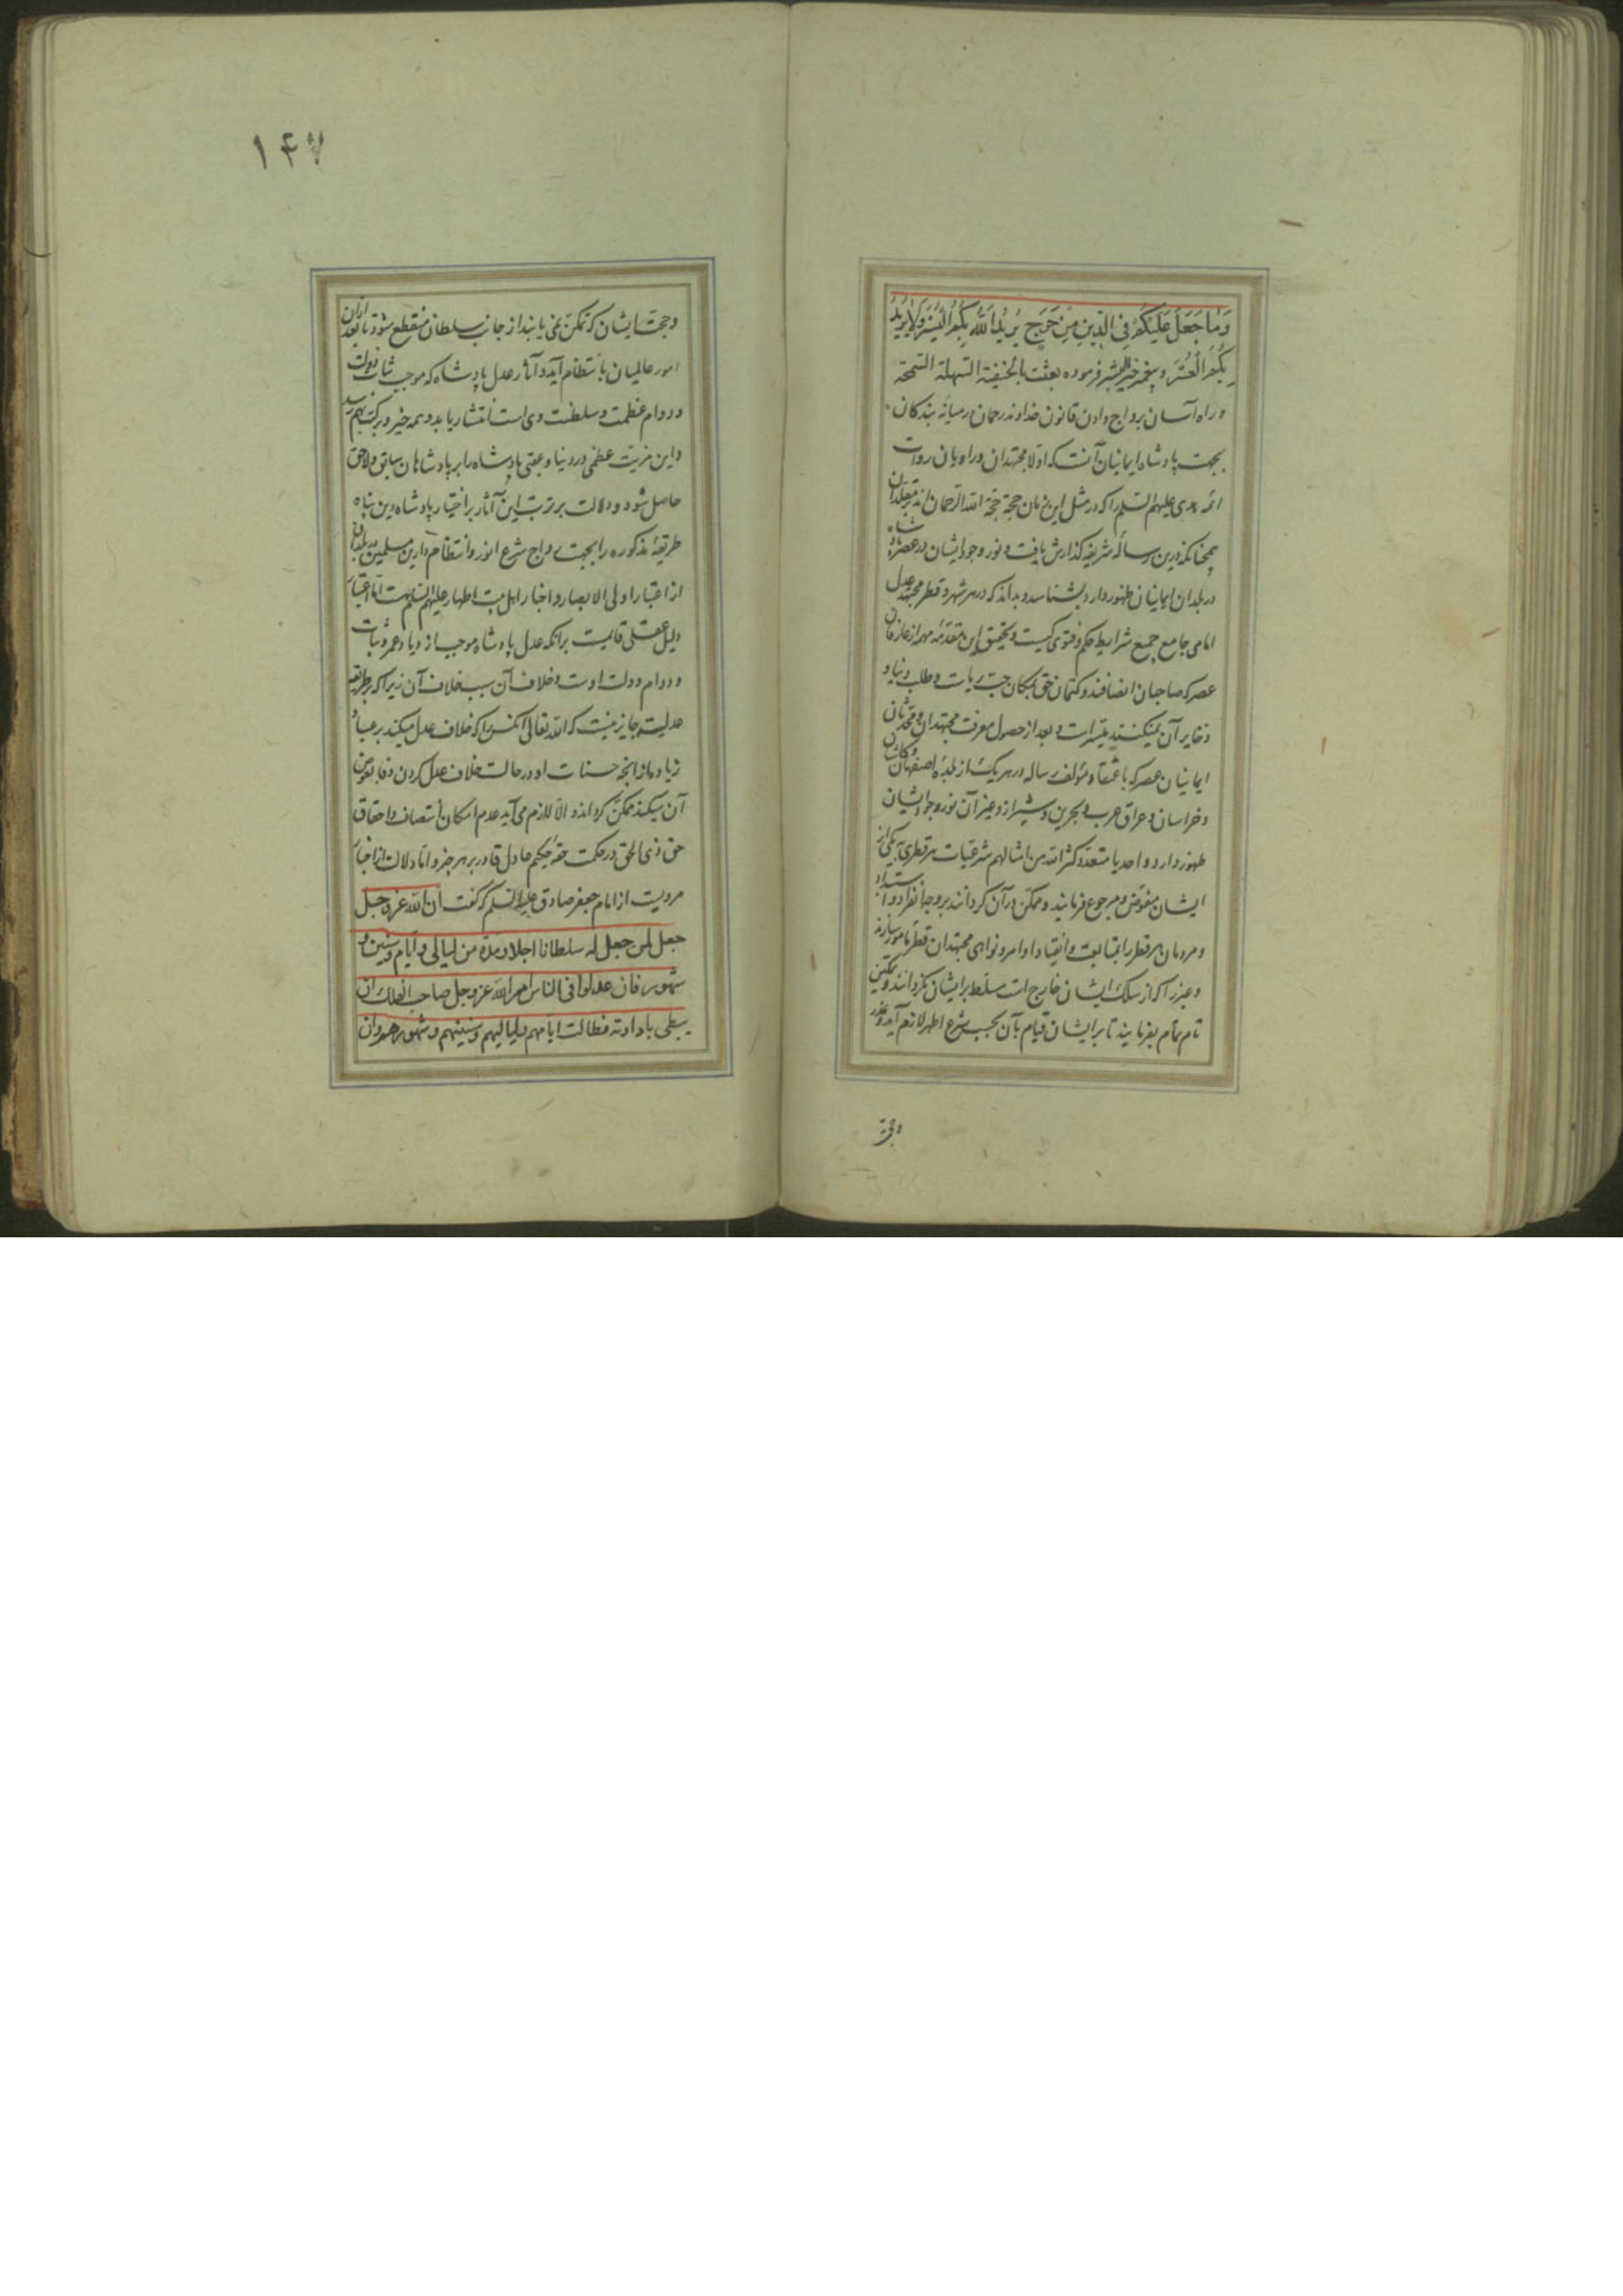 وَمٰا جَعَلَ عَلَيْكُمْ فِي الدِّينِ مِنْ حَرَجٍ يُرِيدُ اللّٰهُ بِكُمُ الْيُسْرَ وَلٰا يُرِيدُ
بِكُمُ الْعُسْرَ و پیغمبر خیر البشر فرموده بعثت بالحنیفة السهلة السمحة
و راه آسان برواج دادن قانون خداوند رحمان در میانه بندکان
بجهت پادشاه ایمانیان آنست که اولا مجتهدان و راویان روایت
ائمه هدی علیهم السلم را که در مثل این زمان حجة حجة الله الرحمان اند بر مقلدان
همچنانکه درین رساله شریفه کذارش یافت و نور وجود ایشان در عصر پادشاه
در بلدان ایمانیان ظهور دارد بشناسد و بداند که در هر شهر و قطر مجتهد عدل
امامی جامع جمیع شرایط حکم و فتوی کیست و تحقیق این مقدمه مهمه از عارفان
عصر که صاحبان انصافند و کتمان حق بمکان حب ریاست و طلب دنیا و
ذخایر آن نمیکنند میسر است و بعد از حصول معرفت مجتهدان و محدثان
ایمانیان عصر که باعتقاد مؤلف رساله در هر یک از بلده اصفهان و کاشان
و خراسان و عراق عرب و بحرین و شیراز و غیر آن نور وجود ایشان
ظهور دارد واحد یا متعدد کثر الله من امثالهم شرعیات هر قطری بیکی از
ایشان مفوض و مرجوع فرمایند و ممکن در آن کردانند بر وجه انفراد و استبداد
و مردمان هر قطر را بمتابعت و انقیاد اوامر و نواهی مجتهدان قطر مامور سازند
و غیر را که از سلک ایشان خارج است مسلط بر ایشان نکردانند و تمکین
تام تمام بفرمایند تا بر ایشان قیام بآن بحسب شرع اطهر لازم آید و عذر
وحجت
وحجت ایشان که تمکن نمی یابند از جانب سلطان منقطع شود تا بعد ازان
امور عالمیان بانتظام آید و آثار عدل پادشاه که موجب ثبات دولت
و دوام عظمت و سلطنت وی است انتشار یابد و همه خیر و برکت بهم رسد
و این مزیت عظمی در دنیا و عقبی پادشاه را بر پادشاهان سابق و لاحق
حاصل شود و دلالت بر ترتب این آثار بر اختیار پادشاه دین پناه
طریقه مذکوره را بجهت رواج شرع انور و انتظام دارین مسلمین در بلدان
از اعتبار اولی الابصار و اخبار اهل بیت اطهار علیهم السلم هست اما اعتبار
دلیل عقلی قایمست برانکه عدل پادشاه موجب ازدیاد عمر و ثبات
و دوام دولت اوست و خلاف آن سبب خلاف آن زیرا که بر طریقه
عدلیه جایز نیست که الله تعالی آنکس را که خلاف عدل میکند بر عباد
زیاده از آنچه حسنات او در حالت خلاف عدل کردن وفا بعوض
آن میکند ممکن کرداند و الا لازم می آید عدم امکان انتصاف و احقاق
حق ذی الحق در حکمت حقه حکیم عادل قادر بر هر چیز و اما دلالت از اخبار
مرویست از امام جعفر صادق علیه السلم که کفت ان الله عز وجل
جعل لمن جعل له سلطانا اجلا و مدة من لیالی و ایام و سنین و
شهور فان عدلوا فی الناس امر الله عز وجل صاحب الفلک ان
یبطی بادارته فطالت ایامهم ولیالیهم وسنینهم وشهورهم وان
١۴٧